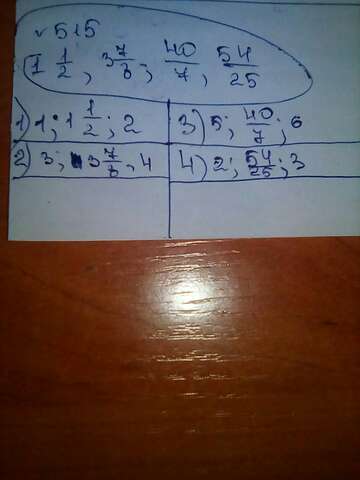 √515
1 1/2, 3 7/8; 40/7, 54/25
1) 1; 1 1/2; 2
3) 5; 40/7; 6
2) 3; 3 7/8, 4
4) 2; 54/25; 3